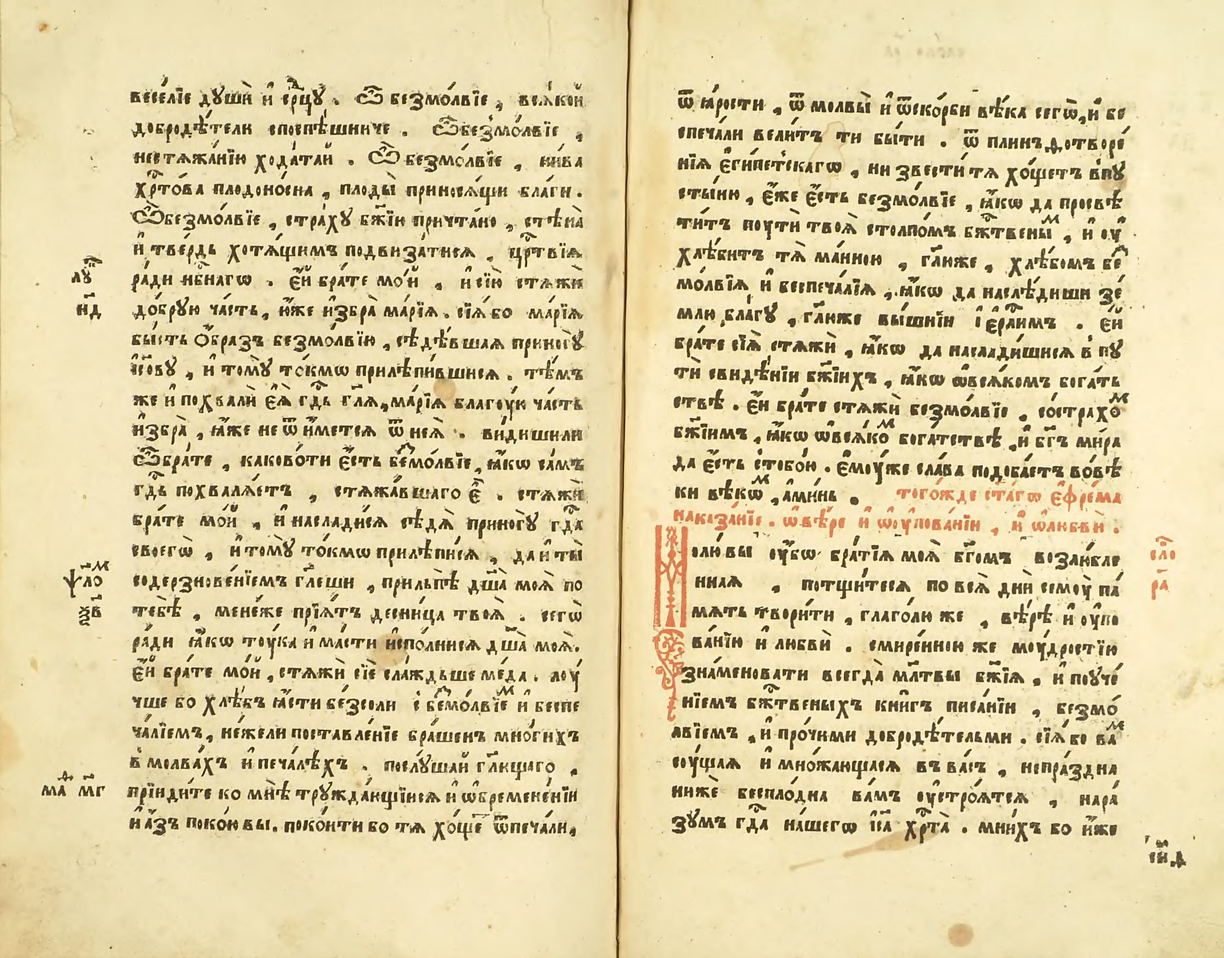 веселїе дꙋшѝ и҆ се́рцꙋ . Ѽ безмо́лвїе , всѧ́кой
добродѣ́тели споспѣ́шниче . Ѽбезмо́лвїе ,
нестѧжа́нїю хода́таю . Ѽ безмо́лвїе , ни́ва
хр҇то́ва плодоно́сна , плоды̀ приносѧ́щи бла́ги .
Ѽбезмо́лвїе , стра́хꙋ бж҃їю причта́но , стѣна̀
и҆ тве́рдь хотѧ́щимъ подвиза́тисѧ , цр҇твїѧ
ра́ди нб҇нагѡ . є҆й бра́те мо́й , и҆ сїю̀ стѧжѝ
до́брꙋю ча́сть , ю҆́же и҆збра̀ марі́ѧ . сїѧ́ бо марі́ѧ
бы́сть ѻ҆́бразъ безмо́лвїю , сѣдѣ́вшаѧ прино́гꙋ
і҆с҃овꙋ , и҆ томꙋ̀ то́кмѡ прилѣпи́вшисѧ . тѣ́мъ
же и҆ похвалѝ є҆ѧ̀ гд҇ь гл҃ѧ , марі́ѧ благꙋ́ю ча́сть
и҆збра̀ , ꙗ҆́же не ѿ и҆́метсѧ ѿ неѧ̀ . ви́дишили
Ѽбра́те , каково́ти є҆́сть безмо́лвїе , ꙗ҆́кѡ са́мъ
гд҇ь похвалѧ́етъ , стѧжа́вшаго є҆̀ . стѧжѝ
бра́те мо́й , и҆ наслади́сѧ сѣдѧ̀ прино́гꙋ гд҇а
своегѡ̀ , и҆ томꙋ̀ то́кмѡ прилѣпи́сѧ , да и҆ ты̀
содерзнове́нїемъ гл҃еши , прильпѐ дш҃а̀ моѧ̀ по
тебѣ̀ , мене́же прїѧ́тъ десни́ца твоѧ̀ . сегѡ̀
ра́ди ꙗ҆́кѡ тоу́ка и҆ ма́сти и҆спо́лнисѧ дш҃а̀ моѧ̀ .
є҆́й бра́те мо́й , стѧжѝ сїѐ слажд́ьше ме́да . лоу́
чше бо хлѣ́бъ ꙗ҆́сти безсоли с безмо́лвїем и҆ беспе
ча́лїемъ , не́жели поставле́нїе бра́шенъ мно́гихъ
в молва́хъ и҆ печа́лѣхъ . послꙋ́шай гл҃ющаго ,
прїиди́те ко мнѣ̀ трꙋжда́ющїисѧ и҆ ѡ҆бремене́нїи
и҆ а҆́зъ поко́ю вы̀ . поко́ити бо тѧ хо́щетъ ѿпеча́ли ,
лꙋ
нд
ѱало
ѯв
ма мг
ѿ ꙗ҆́рости , ѿ молвы̀ и҆ ѿско́рби вѣ́ка сегѡ̀ , и҆ бе
спеча́ли вели́тъ ти бы́ти . ѿ пли́нъфотворе́
нїѧ є҆ги́петскагѡ , ни звести́ тѧ хо́щетъ впꙋ
сты́ню , є҆́же є҆́сть безмо́лвїе , ꙗ҆́кѡ да просвѣ
ти́тъ поутѝ твоѧ̀ столпо́мъ бж҇твены́м , и҆ оу҆
хлѣ́битъ тѧ̀ ма́нною , гл҃юже , хлѣ́бомъ без
мо́лвїѧ и҆ беспеча́лїѧ , ꙗ҆́кѡ да наслѣ́диши зе́
млю бла́гꙋ , гл҃юже вы́шнїи і҆ер҇ли́мъ . є҆́й
бра́те сїѧ̀ стѧжѝ , ꙗ҆́кѡ да наслади́шисѧ в пꙋ
тѝ свидѣ́нїи бж҃їихъ , ꙗ҆́кѡ ѡ҆всѧ́комъ бога́ть
ствѣ . є҆́й бра́те стѧжѝ безмо́лвїе , сострахом
бж҃їимъ , ꙗ҆́кѡ ѡ҆всѧ́ком бога́тствѣ , и҆ бг҃ъ ми́ра
да є҆́сть стобо́ю . є҆моу́же сла́ва подоба́етъ вовѣ́
ки вѣкѡм , а҆ми́нь . тогожде ст҃а́гѡ є҆фре́ма
наказа́нїе . ѡ҆вѣ́ре и҆ ѡ҆оупова́нїи , и҆ ѡ҆любвѝ .
Молю вы оу҆́бѡ бра́тїѧ моѧ̀ бг҃омъ возлю́бле
ннаѧ , потщи́тесѧ по всѧ̀ днѝ семоу̀ па́
мѧть твори́ти , глаго́лю же , вѣ́рѣ и҆ оу҆по
ва́нїю и҆ любвѝ . смире́нною же моу́дростїю
зна́меновати всегда̀ мл҃твы бж҃їѧ , и҆ поуче́
нїемъ бж҇твеныхъ кни́гъ писа́нїи , безмо́
лвїемъ , и҆ про́чими добродѣ́тельми . сїѧ́ бо вам
соу́щаѧ и҆ мно́жащаѧсѧ въ ва́съ , непра́здна
нижѐ беспло́дна ва́мъ оу҆стро́ѧтсѧ , нара́
зꙋмъ гд҇а на́шегѡ і҆с҃а хр҇та̀ . мни́хъ бо и҆́же
сло
ра